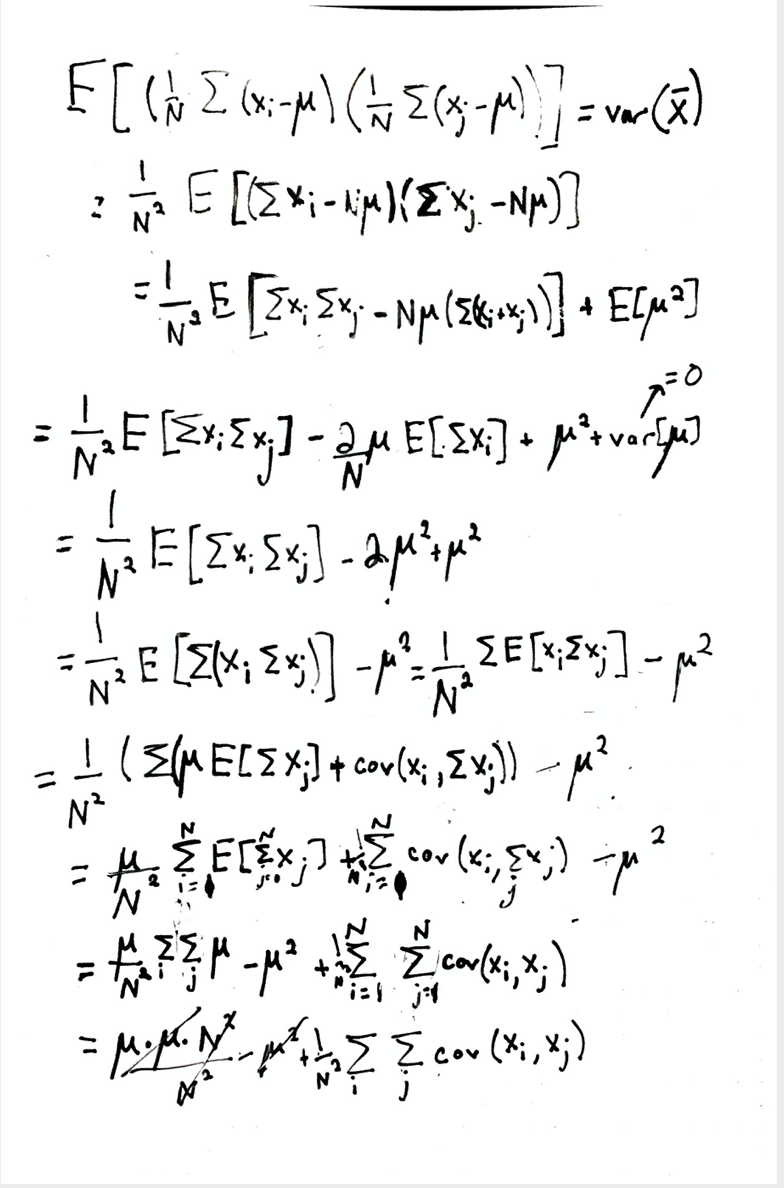 E[(1/N Σ(xᵢ-μ)(1/N Σ(xⱼ-μ))] = var(x̄)
= 1/N² E[(Σxᵢ-Nμ)(Σxⱼ-Nμ)]
= 1/N² E[Σxᵢ Σxⱼ - Nμ(Σ(xᵢ+xⱼ))] + E[μ²]
= 1/N² E[ΣxᵢΣxⱼ] - 2/N μ E[Σxᵢ] + μ² + var[μ] ↗ =0
= 1/N² E[Σxᵢ Σxⱼ] - 2μ² + μ²
= 1/N² E[Σ(xᵢ Σxⱼ)] - μ² = 1/N² ΣE[xᵢΣxⱼ] - μ²
= 1/N² (Σ(μE[Σxⱼ] + cov(xᵢ, Σxⱼ)) - μ²
= μ/N² Σᵢ₌₁ᴺ E[Σⱼ₌₁ᴺ xⱼ] + 1/N² Σᵢ₌₁ᴺ cov(xᵢ, Σⱼ xⱼ) - μ²
= μ/N² Σᵢ Σⱼ μ - μ² + 1/N² Σᵢ₌₁ᴺ Σⱼ₌₁ᴺ cov(xᵢ, xⱼ)
= μ·μ·N²/N² - μ² + 1/N² Σᵢ Σⱼ cov(xᵢ, xⱼ)